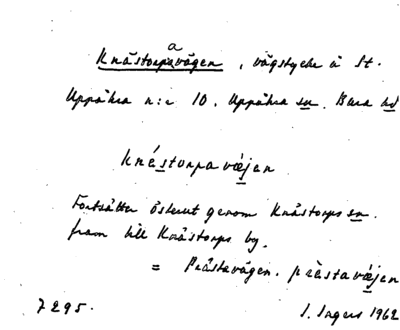 Knästorpavägen, vägstycke å St.
Uppåkra n:r 10. Uppåkra sn. Bara hd
knéstorpavæjen
Fortsätter österut genom Knästorps sn.
fram till Knästorps by.
= Prästavägen. prästavæjen
7295. I. Ingers 1962